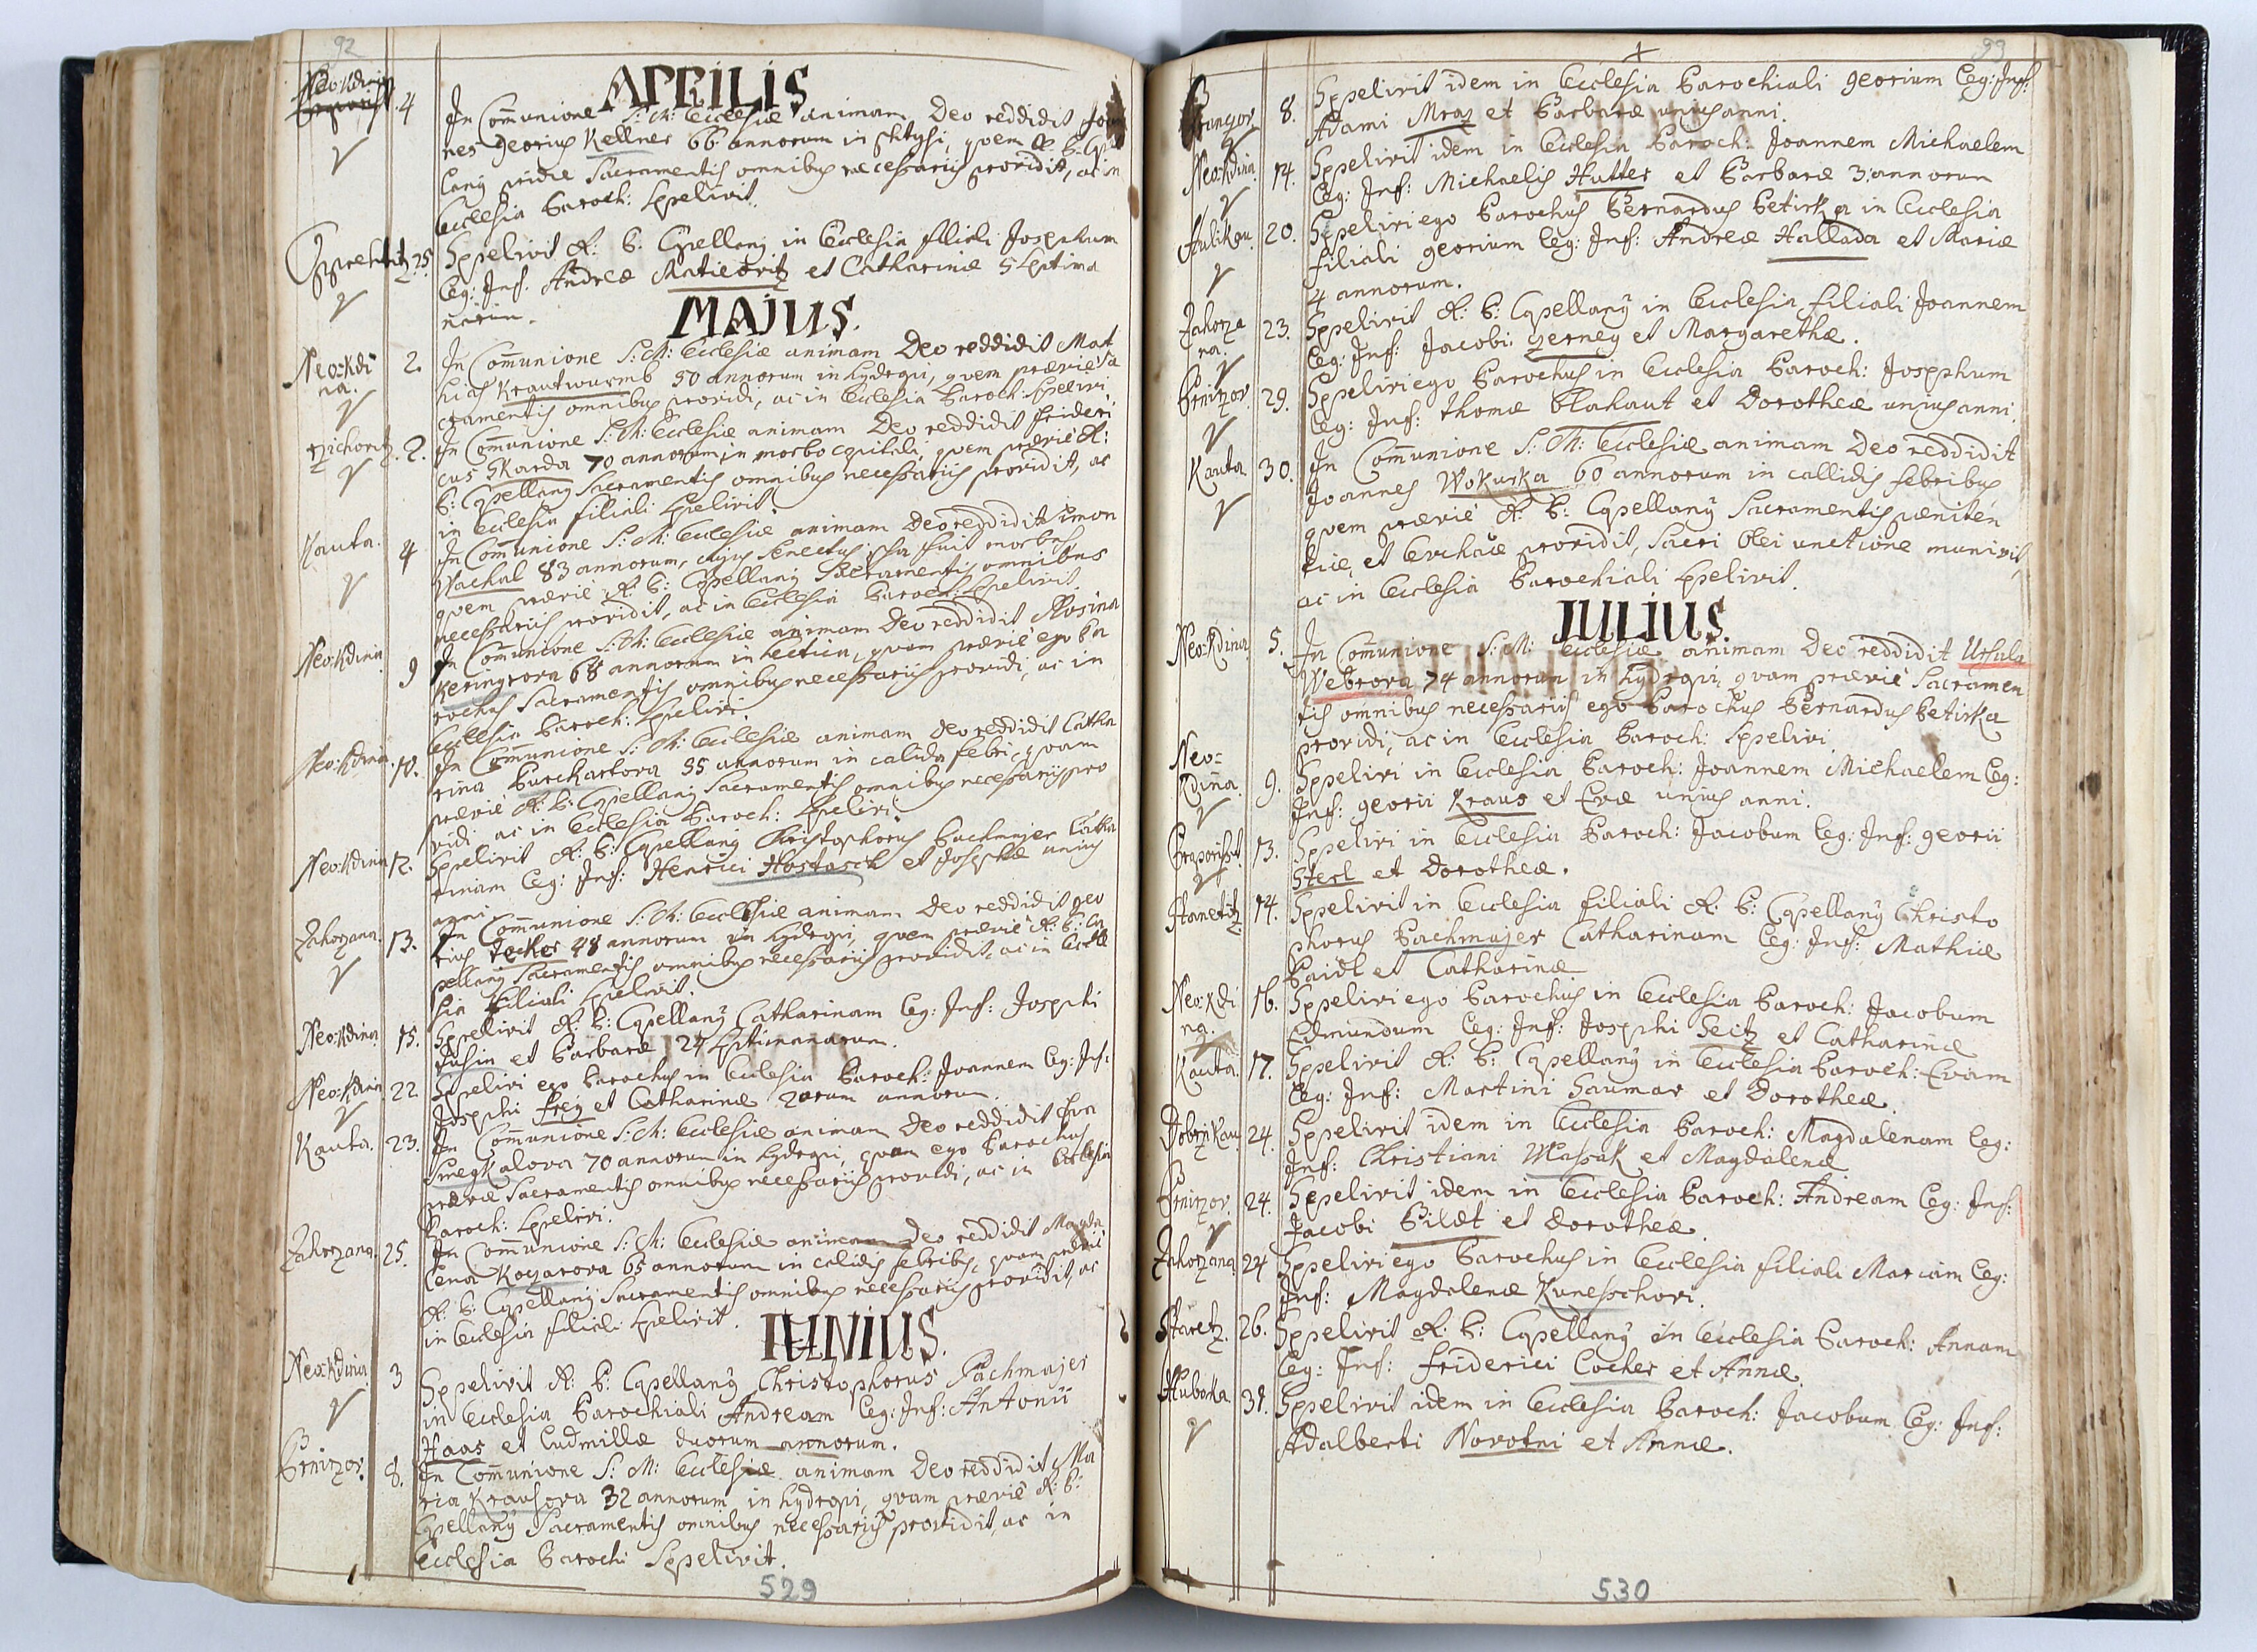 92
APRILIS
Neo:Kdina
4 In Com̄unione S: M: Ecclesiæ animam Deo reddidit Joan
nes Georius Kellner 66 annorum in phtysi, quem R: P: Cap
lanus pridie Sacramentis omnibus necessariis providit, ac in
Ecclesia Paroch: Sepelivit.
25. Sepelivit R: P: Capellanus in Ecclesia filiali Josephum
Leg: Inf: Andreæ Matieovitz et Catharinæ 5 Septima
narum.
MAJUS.
Neo:Kdi
na.
2. In Com̄unione S: M: Ecclesiæ animam Deo reddidit Mat
hias Krautwurmb 50 annorum in hydropi, quem prævie Sa
cramentis omnibus providi, ac in Ecclesia Paroch: Sepelivi
2. In Com̄unione S: M: Ecclesiæ animam Deo reddidit frideri
cus Skarda 70 annorum in morbo capitali, quem prævie R:
P: Capellanus Sacramentis omnibus necessariis providit, ac
in Ecclesia filiali Sepelivit.
Kauta.
4 In Com̄unione S: M: Ecclesiæ animam Deo reddidit Simon
Wachal 83 annorum, cujus Senectus ipsa fuit morbus
quem prævie R: P: Capellanus Sacramentis omnibus
necessariis providit, ac in Ecclesia Paroch: Sepelivit.
Neo:Kdina
9 In Com̄unione S: M: Ecclesiæ animam Deo reddidit Rosina
Keringrova 68 annorum in hectica, quam prævie ego Pa
rochus Sacramentis omnibus necessariis providi, ac in
Ecclesia Paroch: Sepelivi.
Neo:Kdina.
10. In Com̄unione S: M: Ecclesiæ animam Deo reddidit Catha
rina Burckartova 55 annorum in calida febri, quam
prævie R: P: Capellanus Sacramentis omnibus necessariis pro
vidi ac in Ecclesia Paroch: Sepelivi
Neo:Kdina
12. Sepelivit R: P: Capellanus Christophorus Pachmajer Catha
rinam Leg: Inf: Henrici Hostasch et Josephæ unius
anni.
Zahorzana.
13. In Com̄unione S: M: Ecclesiæ animam Deo reddidit Geo
rius Jecker 48 annorum in hydropi, quem prævie R: P: Ca
pellanus Sacramentis omnibus necessariis providit, ac in Eccle
sia Filiali Sepelivit.
Neo:Kdina
15. Sepelivit R: P: Capellanus Catharinam Leg: Inf: Josephi
et Barbaræ 24 Septimanarum.
Neo:Kdina
22. Sepelivi ego Parochus in Ecclesia Paroch: Joannem Leg: Inf:
Josephi frey et Catharinæ 2orum annorum.
Kauta.
23. In Com̄unione S: M: Ecclesiæ animam Deo reddidit Eva
Smegkalova 70 annorum in hydropi, quam ego Parochus
præviæ Sacramentis omnibus necessariis providi, ac in Ecclesia
Paroch: Sepelivi.
Zahorzana.
25. In Com̄unione S: M: Ecclesiæ animam Deo reddidit Magda
lena Kozarova 65 annorum in calidis febribus, quam prævie
R: P: Capellanus Sacramentis omnibus necessariis providit, ac
in Ecclesia filiali Sepelivit.
IUNIUS.
Neo:Kdina
3 Sepelivit R: P: Capellanus Christophorus Pachmajer
in Ecclesia Parochiali Andream Leg: Inf: Antonii
Haas et Ludmillæ duorum annorum.
Prnitzov.
8. In Com̄unione S: M: Ecclesiæ animam Deo reddidit Ma
ria Krausova 32 annorum in hydropi, quam prævie R: P:
Capellanus Sacramentis omnibus necessariis providit, ac in
Ecclesia Paroch: Sepelivit.
529
93
8. Sepelivit idem in Ecclesia Parochiali Georium Leg: Inf:
Adami Mraz et Barbaræ unius anni.
Neo:Kdina.
14. Sepelivit idem in Ecclesia Paroch: Joannem Michaelem
Leg: Inf: Michaelis Hutter et Barbaræ 3. annorum
20. Sepelivi ego Parochus Bernardus Petirka in Ecclesia
filiali Georium Leg: Inf: Andreæ Hallada et Mariæ
4 annorum.
Zahorza
na.
23. Sepelivit R: P: Capellanus in Ecclesia filiali Joannem
Leg: Inf: Jacobi Zerney et Margarethæ.
Prnitzov.
29. Sepelivi ego Parochus in Ecclesia Paroch: Josephum
Leg: Inf: Thomæ Blahaut et Dorotheæ unius anni.
Kauta
30. In Com̄unione S: M: Ecclesiæ animam Deo reddidit
Joannes Wokurka 60 annorum in callidis febribus
quem prævie R: P: Capellanus Sacramentis pæniten
tiæ, et Euchaæ providit, Sacri Olei unctione munivit,
ac in Ecclesia Parochiali Sepelivit.
JULIUS.
Neo:Kdina
5. In Com̄unione S: M: Ecclesiæ animam Deo reddidit Ursula
Webrova 74 annorum in hydropi, quam prævie Sacramen
tis omnibus necessariis ego Parochus Bernardus Petirka
providi, ac in Ecclesia Paroch: Sepelivi.
Neo=
Kdina.
9. Sepelivi in Ecclesia Paroch: Joannem Michaelem Leg:
Inf: Georii Kraus et Evæ unius anni.
13. Sepelivi in Ecclesia Paroch: Jacobum Leg: Inf: Georii
Sterl et Dorotheæ.
Stanetitz
14. Sepelivit in Ecclesia filiali R: P: Capellanus Christo
phorus Pachmajer Catharinam Leg: Inf: Mathiæ
Paidl et Catharinæ.
Neo:Kdi
na.
16. Sepelivi ego Parochus in Ecclesia Paroch: Jacobum
Edmundum Leg: Inf: Josephi Seitz et Catharinæ
Kauta.
17. Sepelivit R: P: Capellanus in Ecclesia Paroch: Evam
Leg: Inf: Martini Saumar et Dorotheæ.
Dobrzikau
24. Sepelivit idem in Ecclesia Paroch: Magdalenam Leg:
Inf: Christiani Massak et Magdalenæ
Prnitzov.
24. Sepelivit idem in Ecclesia Paroch: Andream Leg: Inf:
Jacobi Pilát et Dorotheæ.
Zahorzana.
24 Sepelivi ego Parochus in Ecclesia filiali Mariam Leg:
Inf: Magdalenæ Kunesschovi.
Staretz.
26. Sepelivit R: P: Capellanus in Ecclesia Paroch: Annam
Leg: Inf: Friderici Locher et Annæ.
Hluboka.
31. Sepelivit idem in Ecclesia Paroch: Jacobum Leg: Inf:
Adalberti Novotni et Annæ.
530